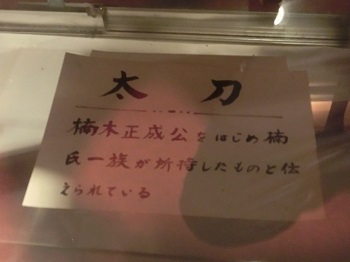 太刀
楠木正成公をはじめ楠
氏一族が所持したものと伝
えられている